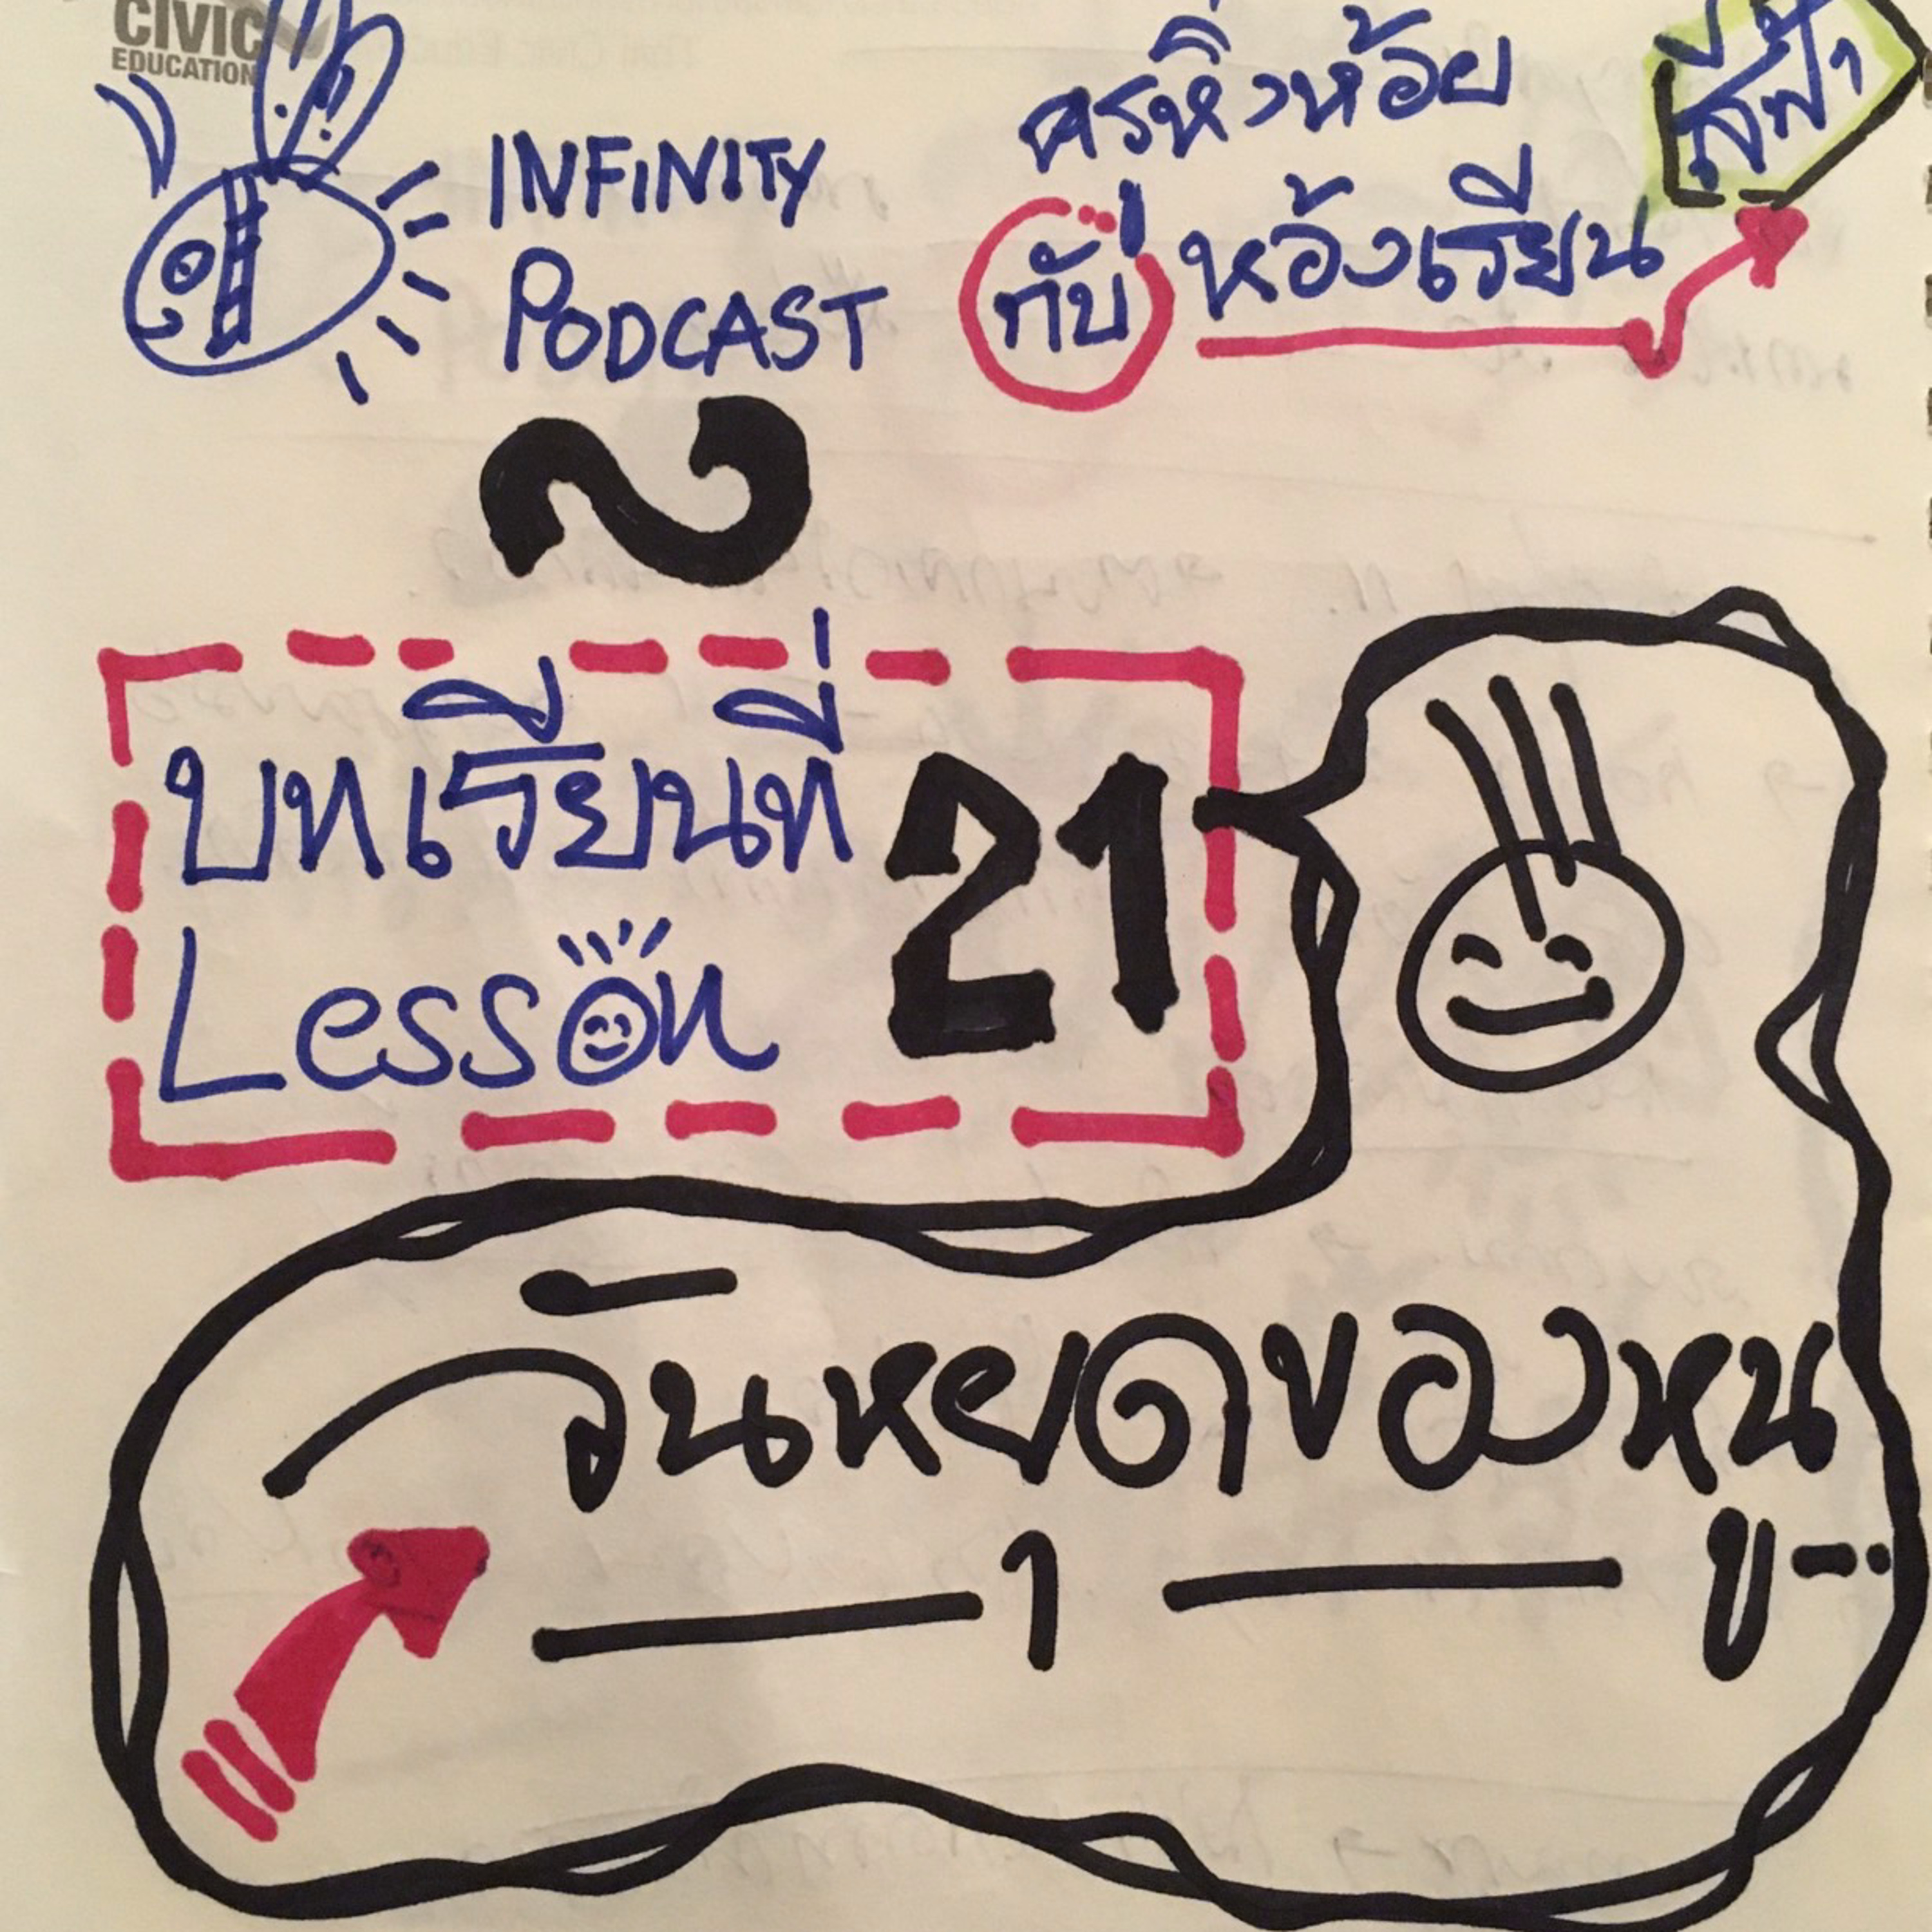 CIVIC
EDUCATION
INFINITY
PODCAST
ครูหิ่งห้อย
กับ ห้องเรียน
สีฟ้า
บทเรียนที่ 21
Lesson
วันหยุดของหนู